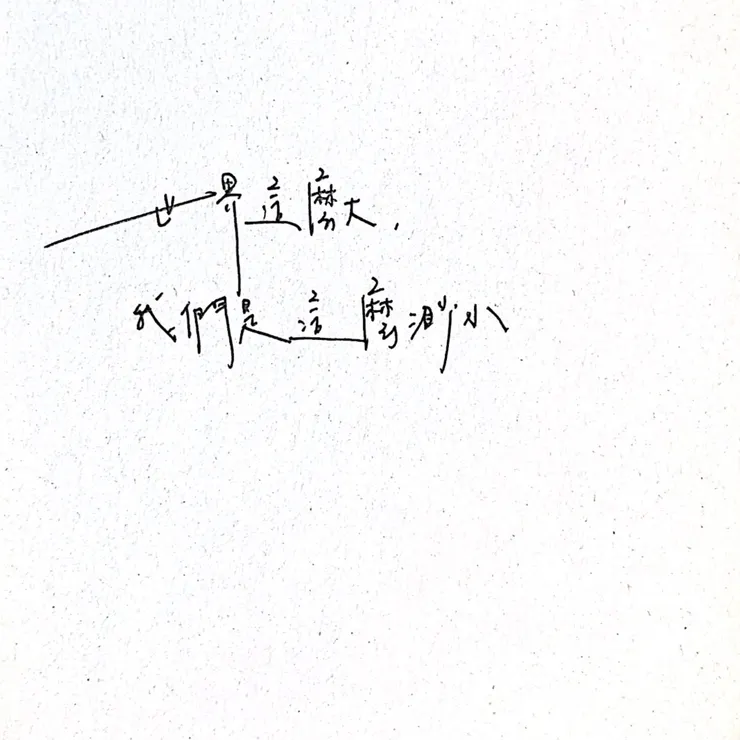 世界這麼大,
我們是這麼渺小